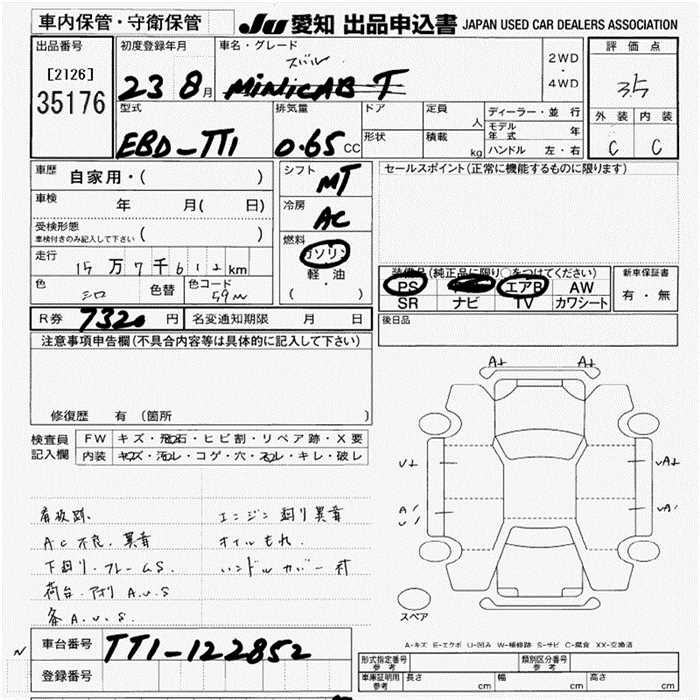 車内保管・守衛保管
JU 愛知 出品申込書 JAPAN USED CAR DEALERS ASSOCIATION
出品番号
[2126]
35176
初度登録年月
23 8月
車名・グレード
スバル
MINICAB T
2WD
・
4WD
評価点
3.5
外装 内装
C C
型式
EBD-TT1
排気量
0.65 CC
ドア
形状
定員 人
積載 kg
ディーラー・並行
モデル年式 年
ハンドル 左・右
車歴
自家用・( )
車検 年 月( 日)
受検形態
車検付きのみ記入して下さい ( )
走行
15万7千612km
色 シロ
色替
色コード 59W
シフト MT
冷房 AC
燃料
ガソリン
軽・油
( )
セールスポイント(正常に機能するものに限ります)
装備品(純正品に限り○をつけてください)
PS エアB AW
SR ナビ TV カワシート
新車保証書
有・無
R券 7320円
名変通知期限 月 日
後日品
注意事項申告欄(不具合内容等は具体的に記入して下さい)
修復歴 有(箇所 )
検査員記入欄
FW キズ・飛石・ヒビ割・リペア跡・X要
内装 キズ・汚レ・コゲ・穴・スレ・キレ・破レ
看板跡.
AC不良.異音
下廻り・フレームS.
荷台.アオリ A.U.S
各A.U.S.
エンジン廻り異音
オイルもれ.
ハンドルカバー付
A1 A1
U1 UA1
A1 UA1
U1
スペア
A-キズ E-エクボ U-凹み W-補修跡 S-サビ C-腐食 XX-交換済
車台番号 TT1-122852
登録番号
形式指定番号 参考
類別区分番号 参考
車庫証明用 参考
長さ cm 幅 cm 高さ cm